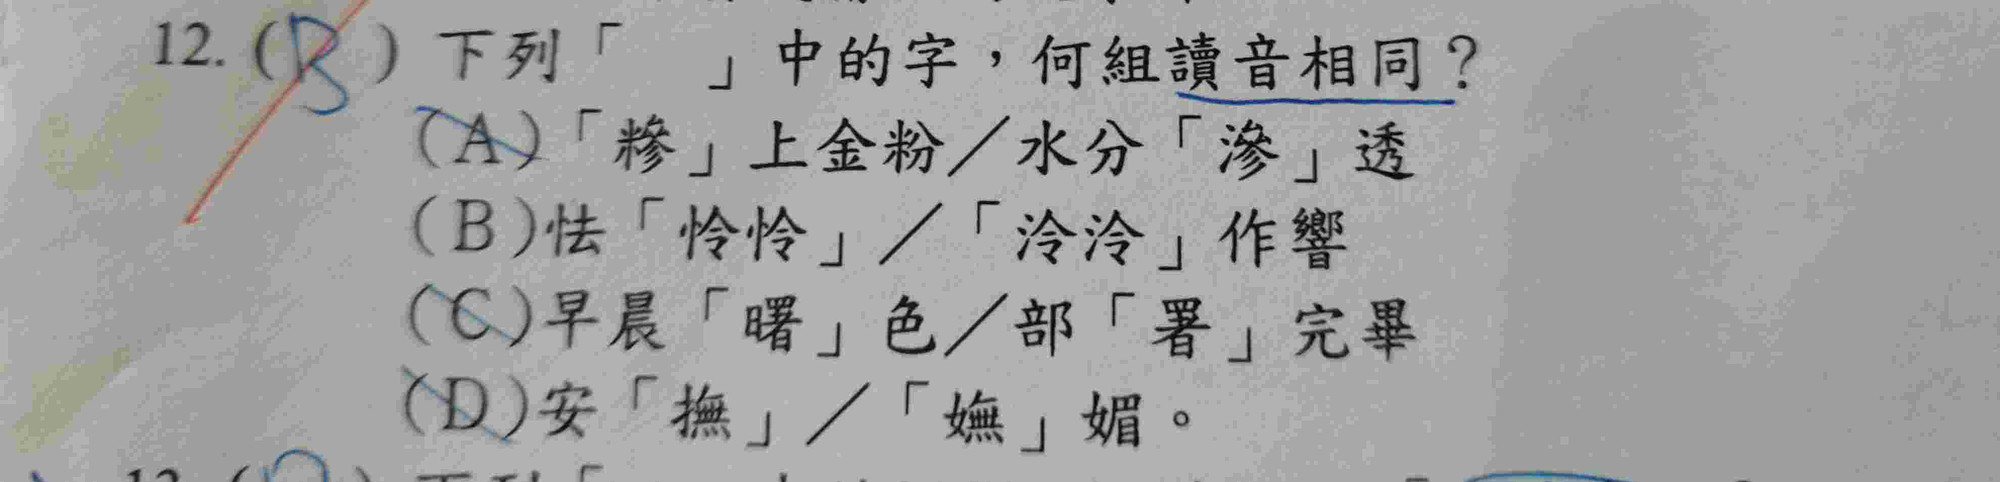 12. (B) 下列「　」中的字，何組讀音相同？
(A)「糝」上金粉／水分「滲」透
(B)怯「怜怜」／「泠泠」作響
(C)早晨「曙」色／部「署」完畢
(D)安「撫」／「嫵」媚。